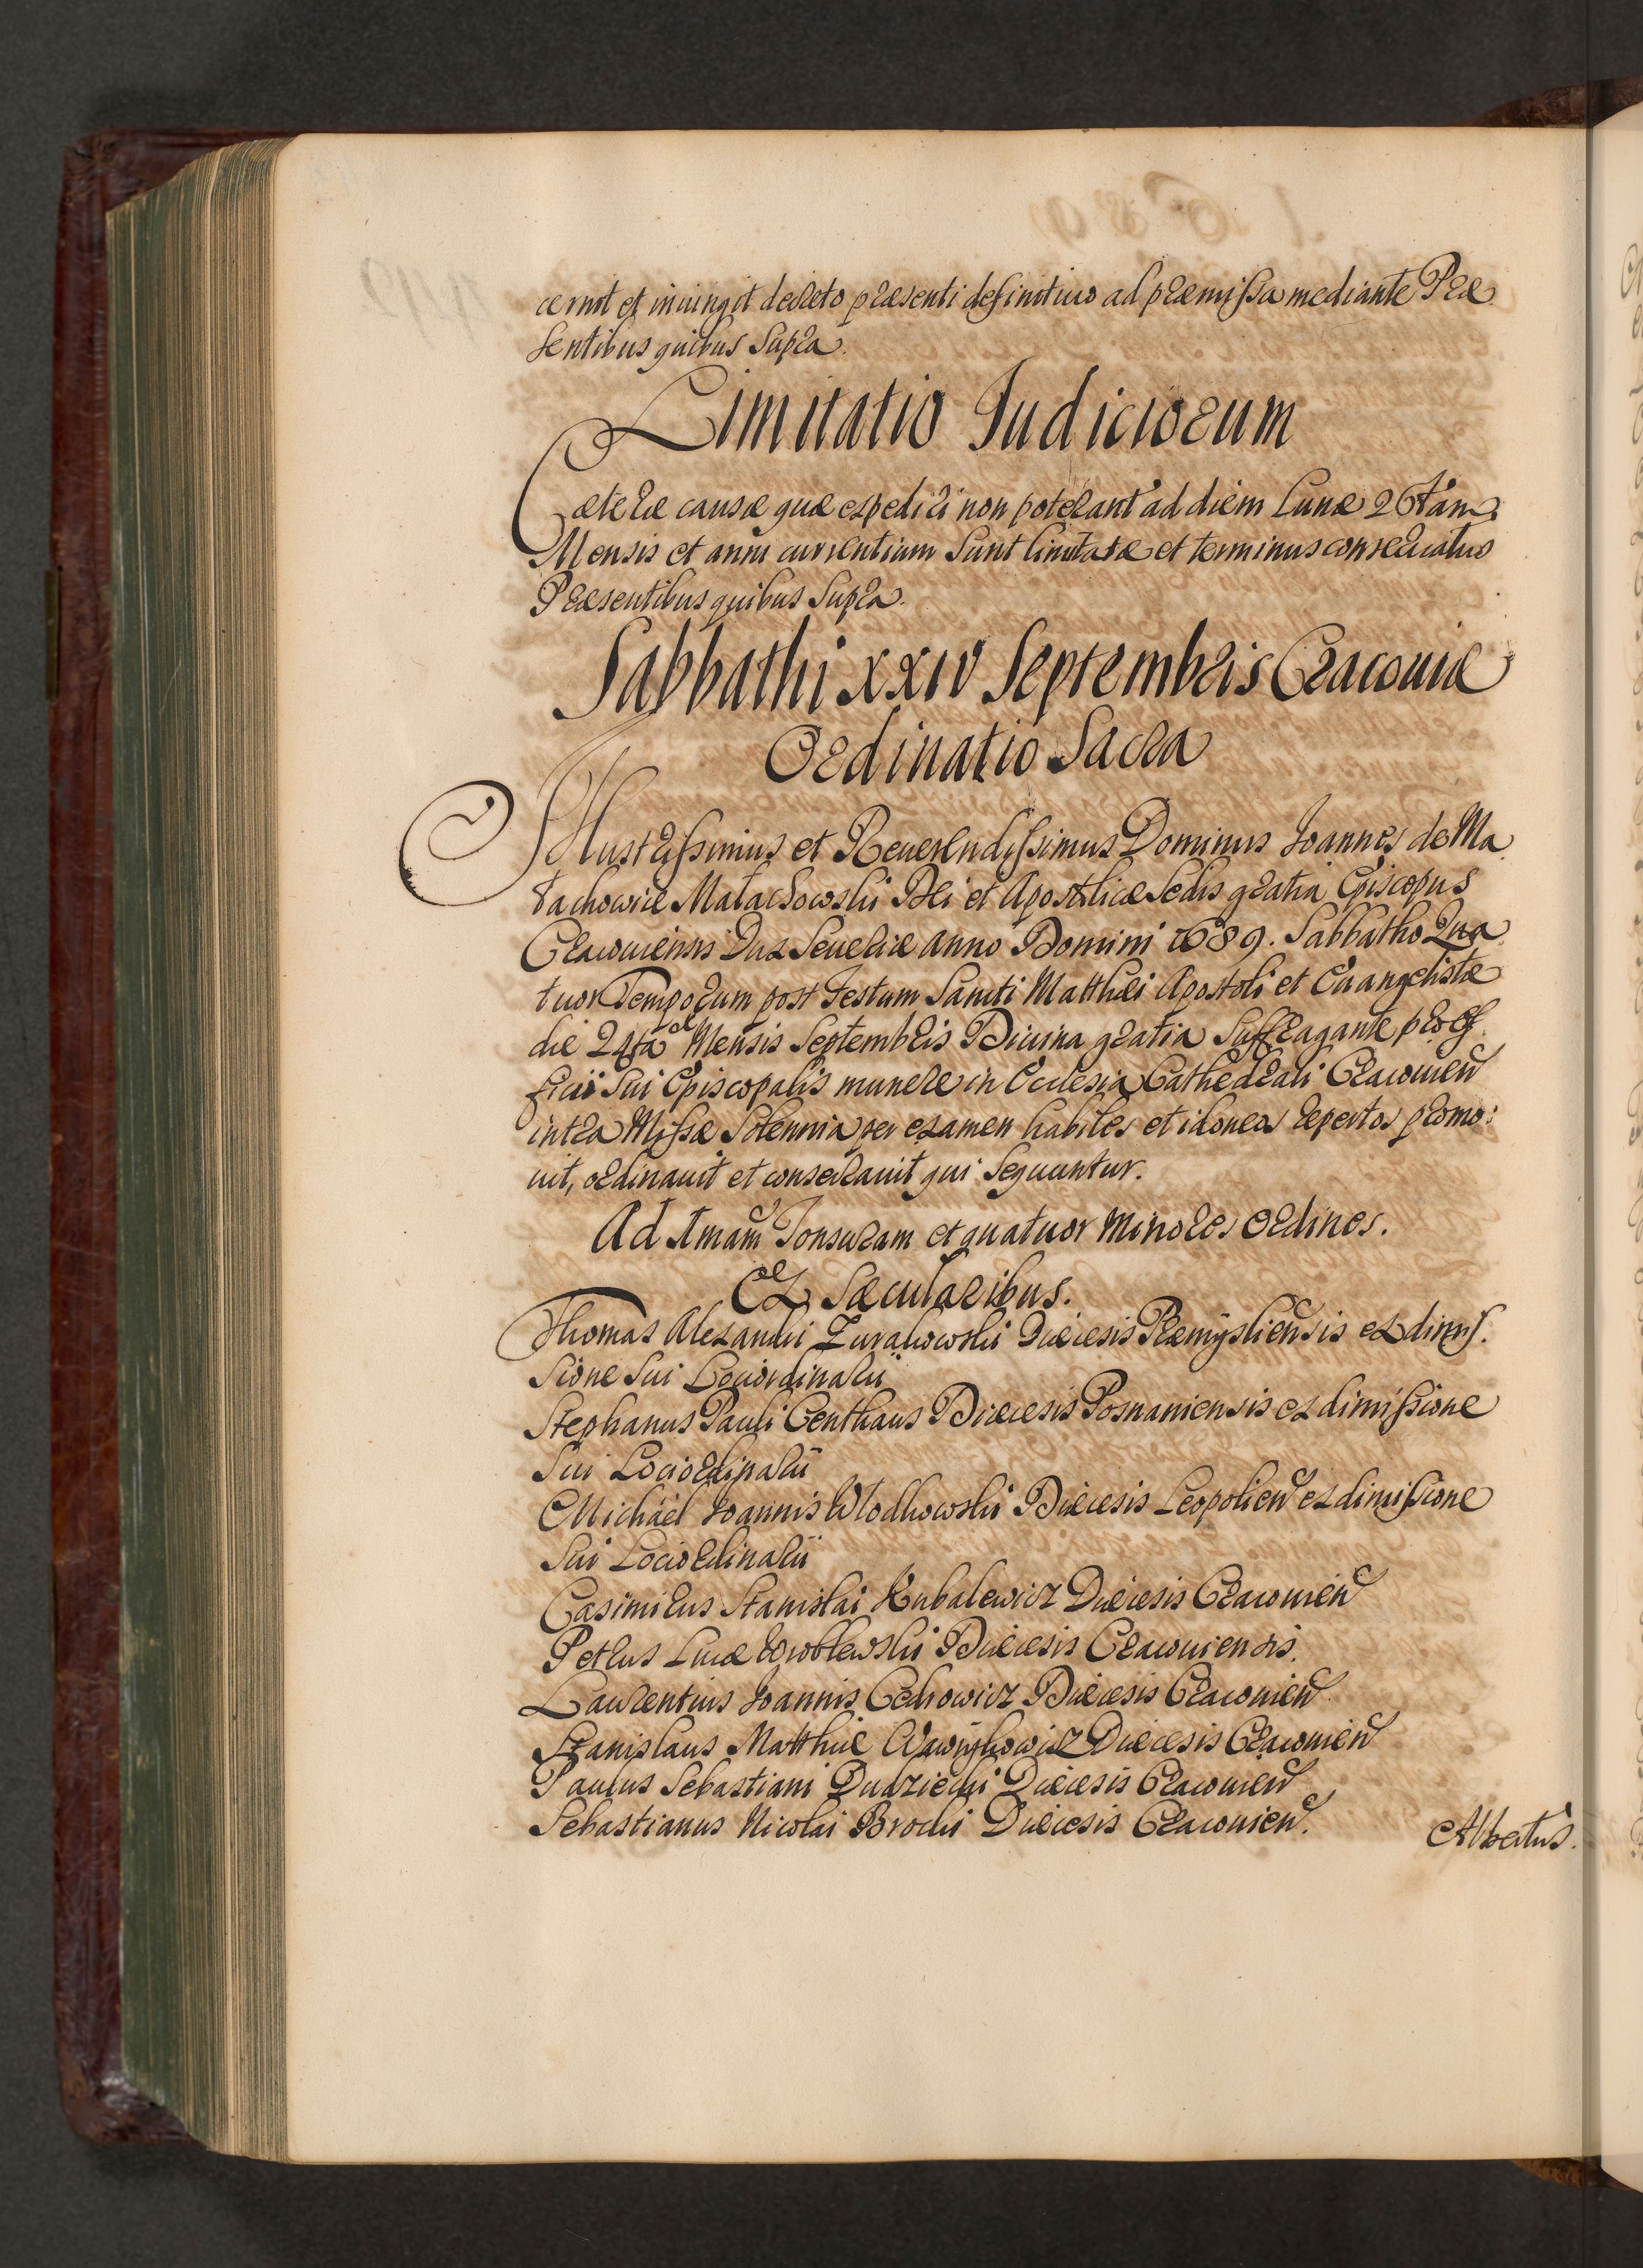 cernit et iniungit decreto præsenti definitiuo ad præmissa mediante Præ
sentibus quibus Supra.
Limitatio Judiciorum
Cæteræ causæ quæ expediri non poterant ad diem Lunæ 26tam
Mensis et anni currentium Sunt limitatæ et terminus conseruatus
Præsentibus quibus Supra.
Sabbathi XXIV Septembris Cracouiæ
Ordinatio Sacra
Illustrissimus et Reuerendissimus Dominus Joannes de Ma
łachowice Małachowski Dei et Apostolicæ Sedis gratia Episcopus
Cracouiensis Dux Seueriæ anno Domini 1689. Sabbatho Qua
tuor Temporum post Festum Sancti Matthæi Apostoli et Euangelistæ
die 24ta Mensis Septembris Diuina gratia Suffragante pro of
ficii Sui Episcopalis munere in Ecclesia Cathedrali Cracouien
intra Missæ Solennia per examen habiles et idoneos repertos promo:
uit, ordinauit et consecrauit qui Sequuntur.
Ad 1mam Tonsuram et quatuor Minores Ordines.
Ex Sæcularibus.
Thomas Alexandri Zurakowski Diæcesis Præmysliensis ex dimis
sione Sui Lociordinarii
Stephanus Pauli Centhaus Diæcesis Posnaniensis ex dimissione
Sui Lociordinarii
Michael Joannis Wlodkowski Diæcesis Leopolien ex dimissione
Sui Lociordinarii
Casimirus Stanislai Kubalewicz Diæcesis Cracouien
Petrus Lucæ Wroblewski Diæcesis Cracouiensis.
Laurentius Joannis Cedrowicz Diæcesis Cracouien
Stanislaus Matthiæ Diæcesis Cracouien
Paulus Sebastiani Dudziecki Diæcesis Cracouien
Sebastianus Nicolai Brocki Diæcesis Cracouien.
Albertus.